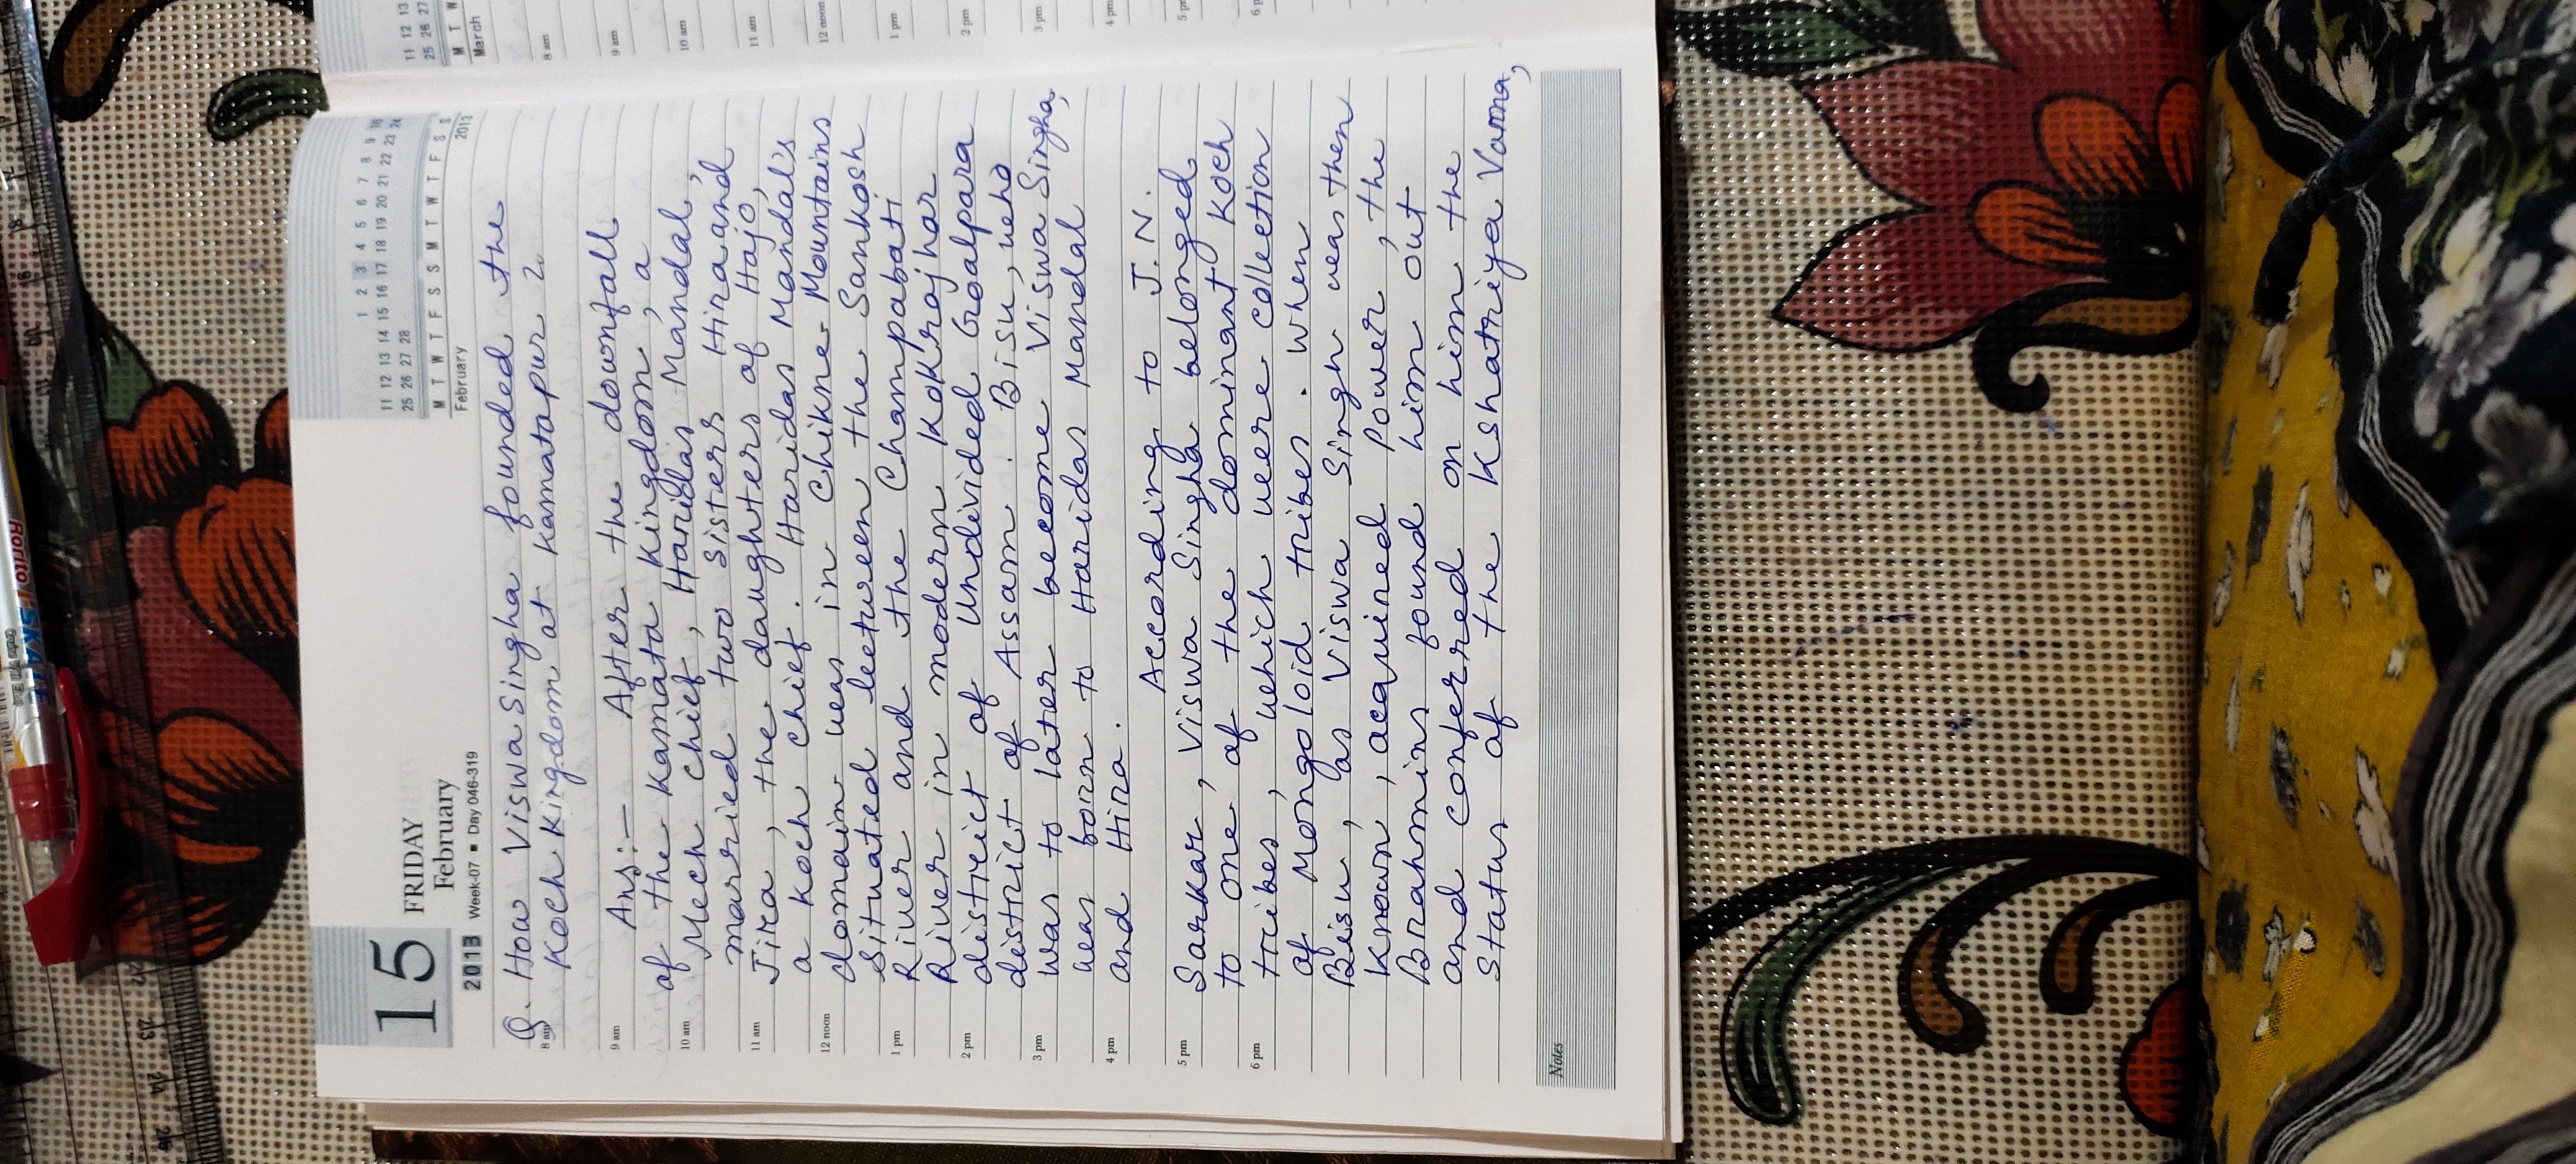 15 FRIDAY
February
2013 Week-07 ▪ Day 046-319
1 2 3 4 5 6 7 8 9 10
11 12 13 14 15 16 17 18 19 20 21 22 23 24
25 26 27 28
M T W T F S S M T W T F S S M T W T F S S
February 2013
Q. How Viswa Singha founded the
Koch Kingdom at Kamatapur ?
Ans:— After the downfall
of the Kamata Kingdom, a
Mech chief, Haridas Mandal,
married two sisters Hira and
Jira, the daughters of Hajo,
a Koch chief. Haridas Mandal's
domain was in Chikna Mountains
situated between the Sankosh
River and the Champabati
River in modern Kokrajhar
district of Undivided Goalpara
district of Assam. Bisu, who
was to later become Viswa Singha,
was born to Haridas Mandal
and Hira.
According to J.N.
Sarkar, Viswa Singha belonged
to one of the dominant Koch
tribes, which were collection
of Mongoloid tribes. When
Bisu, as Viswa Singh was then
known, acquired Power, the
Brahmins found him out
and conferred on him the
status of the Kshatriya Varna,
8 am
9 am
10 am
11 am
12 noon
1 pm
2 pm
3 pm
4 pm
5 pm
6 pm
Notes
11 12 13
25 26 27
M T W
March
8 am
9 am
10 am
11 am
12 noon
1 pm
2 pm
3 pm
4 pm
5 pm
6 p